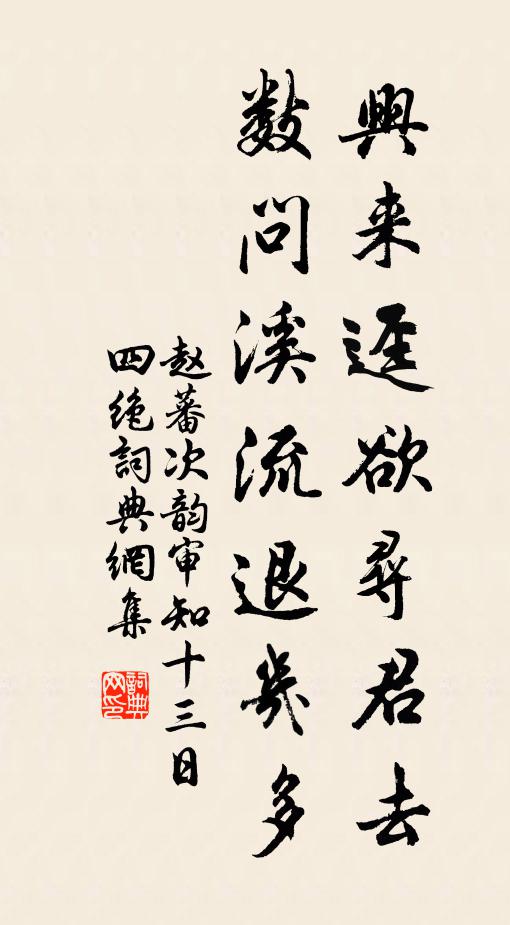 興来逕欲尋君去
数問溪流退幾多
赵蕃次韵审知十三日
四绝詞典網集
詞典
网印